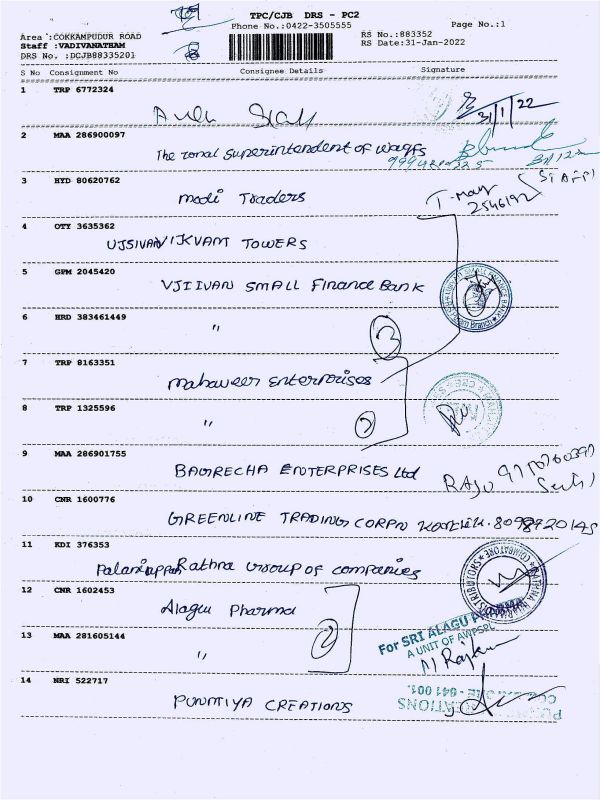 TPC/CJB DRS - PC2
Phone No.:0422-3505555
Page No.:1
Area :COKKAMPUDUR ROAD
RS No.:883352
Staff :VADIVANATHAM
RS Date:31-Jan-2022
DRS No. :DCJB88335201
S No Consignment No Consignee Details Signature
1 TRP 6772324
31/1/22
2 MAA 286900097
The zonal Superintendent of waqfs
3 HYD 80620762
modi Traders
2546192
4 OTY 3635362
TOWERS
5 GPM 2045420
VJIIVAN SMALL Finance Bank
6 HRD 383461449
"
3
7 TRP 8163351
mahaveer Enterprises
8 TRP 1325596
"
2
9 MAA 286901755
BAGRECHA ENTERPRISES Ltd
RAJU
10 CNR 1600776
GREENLINE TRADING CORPN
8098920145
11 KDI 376353
Palaniappa Rathna Group of companies
12 CNR 1602453
Alagu Pharma
2
13 MAA 281605144
"
For SRI ALAGU PHARMA
A UNIT OF AWPSBL
14 NRI 522717
PUNITIYA CREATIONS